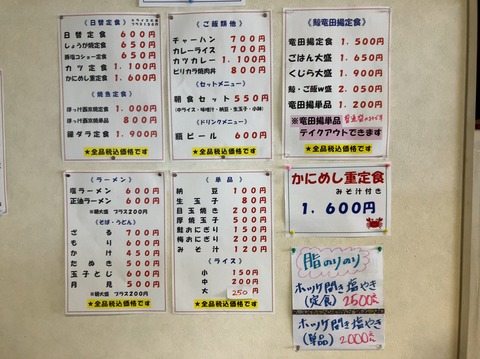 【日替定食】
日替定食 600円
しょうが焼定食 650円
豚塩コショー定食 650円
カツ定食 1.100円
かにめし重定食 1.600円
【焼魚定食】
ほっけ醤油焼定食 1.000円
ほっけ醤油焼単品 800円
銀ダラ定食 1.900円
★全品税込価格です
【ご飯類他】
チャーハン 700円
カレーライス 700円
カツカレー 1.100円
ピリカラ焼肉丼 800円
【セットメニュー】
朝食セット 550円
(中ライス・味噌汁・納豆・生玉子・小鉢)
【ドリンクメニュー】
瓶ビール 600円
★全品税込価格です
【鯨竜田揚定食】
竜田揚定食 1.500円
ごはん大盛 1.650円
くじら大盛 1.900円
鯨・ご飯W盛 2.050円
竜田揚単品 1.200円
※竜田揚単品
テイクアウトできます
★全品税込価格です
【ラーメン】
塩ラーメン 600円
正油ラーメン 600円
※麺大盛 プラス200円
【そば・うどん】
ざる 700円
もり 600円
かけ 450円
たぬき 500円
玉子とじ 600円
月見 500円
※麺大盛 プラス200円
★全品税込価格です
【単品】
納豆 100円
生玉子 80円
目玉焼き 200円
厚焼玉子 500円
鮭おにぎり 150円
梅おにぎり 200円
みそ汁 120円
【ライス】
小 150円
中 200円
大 250円
★全品税込価格です
かにめし重定食
みそ汁付き
1.600円
脂のりのり
ホッケ開き塩やき
(定食) 2500円
ホッケ開き塩やき
(単品) 2000円